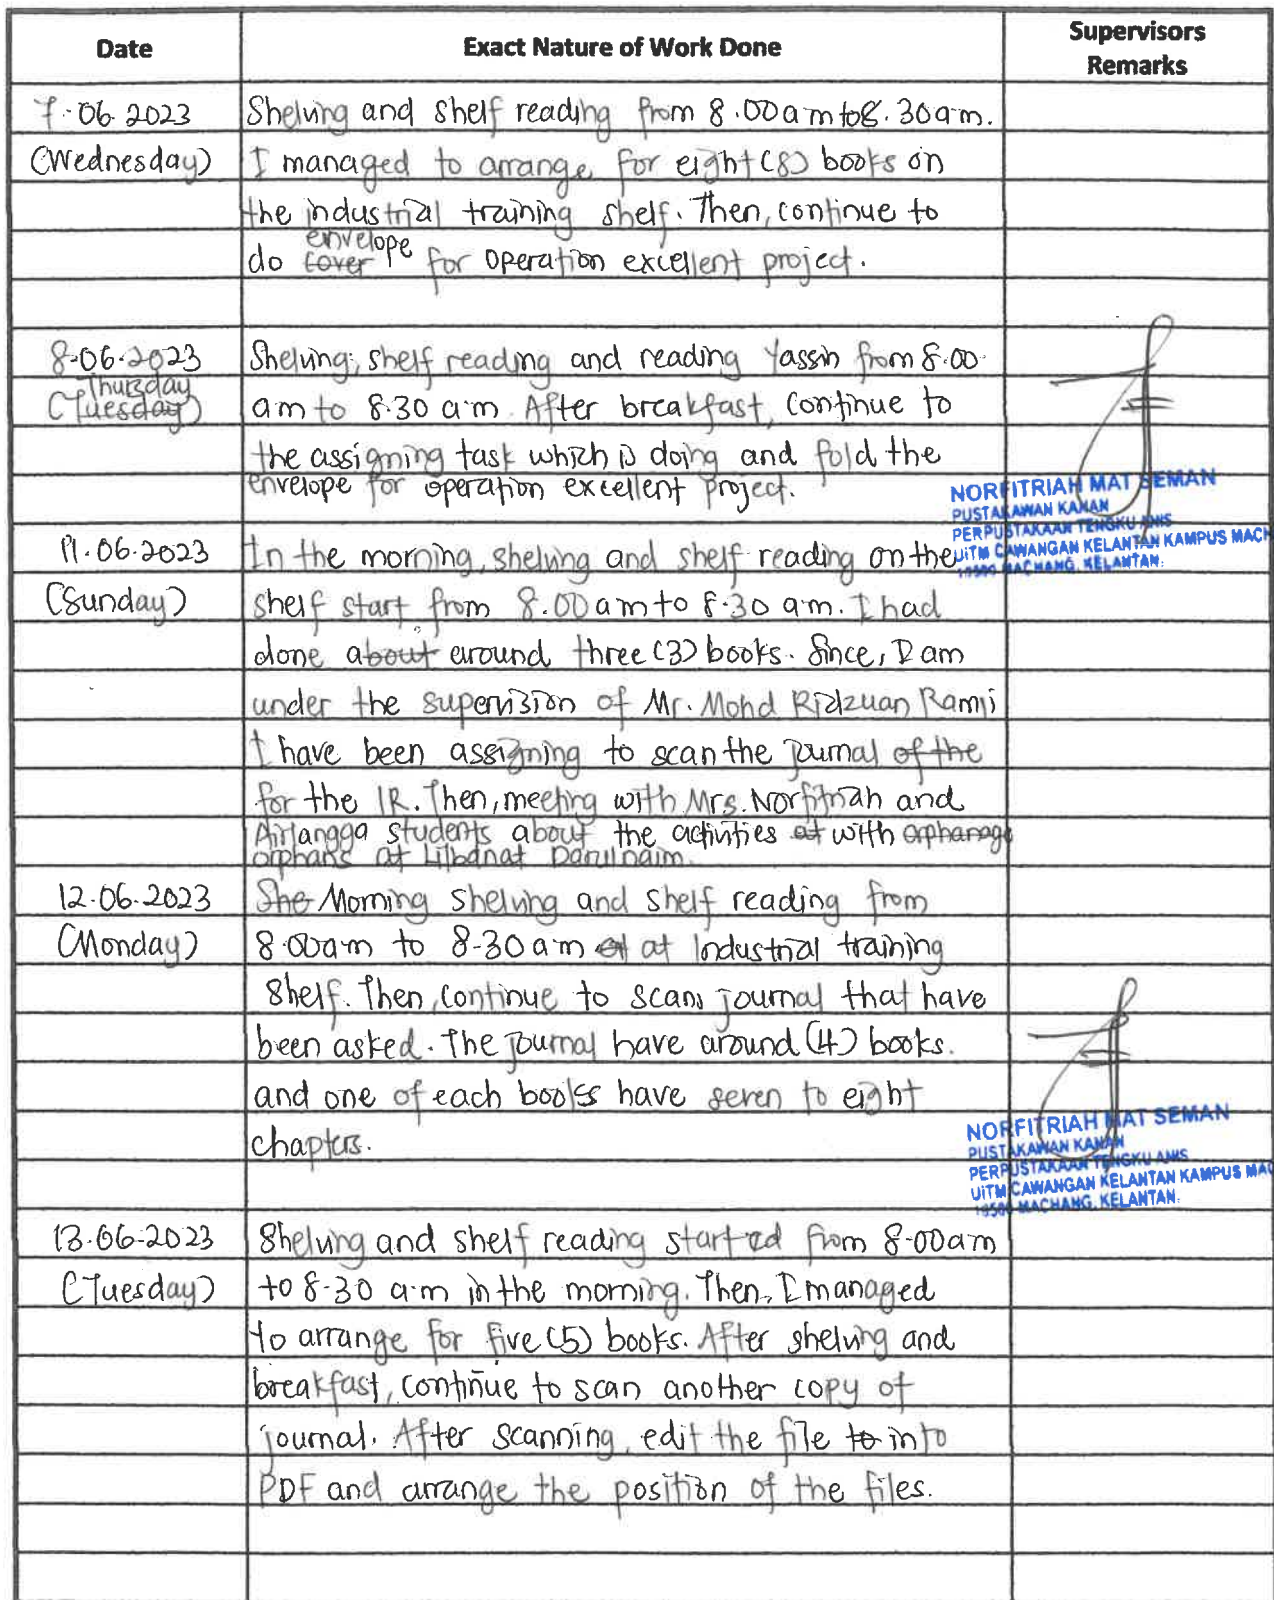 Date Exact Nature of Work Done Supervisors Remarks
7.06.2023 Shelving and shelf reading from 8.00am to 8.30am.
(Wednesday) I managed to arrange for eight (8) books on
the industrial training shelf. Then, continue to
do cover envelope for operation excellent project.
8.06.2023 Shelving, shelf reading and reading Yassin from 8.00
(Tuesday Thursday) am to 8.30 a.m. After breakfast, continue to
the assigning task which is doing and fold the
envelope for operation excellent project.
NORFITRIAH MAT SEMAN
PUSTAKAWAN KANAN
PERPUSTAKAAN TENGKU ANIS
UiTM CAWANGAN KELANTAN KAMPUS MACH
18500 MACHANG, KELANTAN.
11.06.2023 In the morning, shelving and shelf reading on the
(Sunday) shelf start from 8.00 am to 8.30 am. I had
done about around three (3) books. Since, I am
under the supervision of Mr. Mohd Ridzuan Ramli
I have been assigning to scan the journal of the
for the IR. Then, meeting with Mrs. Norfitriah and
Airlangga students about the activities at with orphanage
orphans at Lilbanat Darulnaim.
12.06.2023 She Morning shelving and shelf reading from
(Monday) 8.00am to 8.30 am at at Industrial training
shelf. Then, continue to scan journal that have
been asked. The journal have around (4) books.
and one of each books have seven to eight
chapters.
NORFITRIAH MAT SEMAN
PUSTAKAWAN KANAN
PERPUSTAKAAN TENGKU ANIS
UiTM CAWANGAN KELANTAN KAMPUS MAC
18500 MACHANG, KELANTAN.
13.06.2023 Shelving and shelf reading started from 8.00am
(Tuesday) to 8.30 a.m in the morning. Then, I managed
to arrange for five (5) books. After shelving and
breakfast, continue to scan another copy of
journal. After scanning, edit the file to into
PDF and arrange the position of the files.